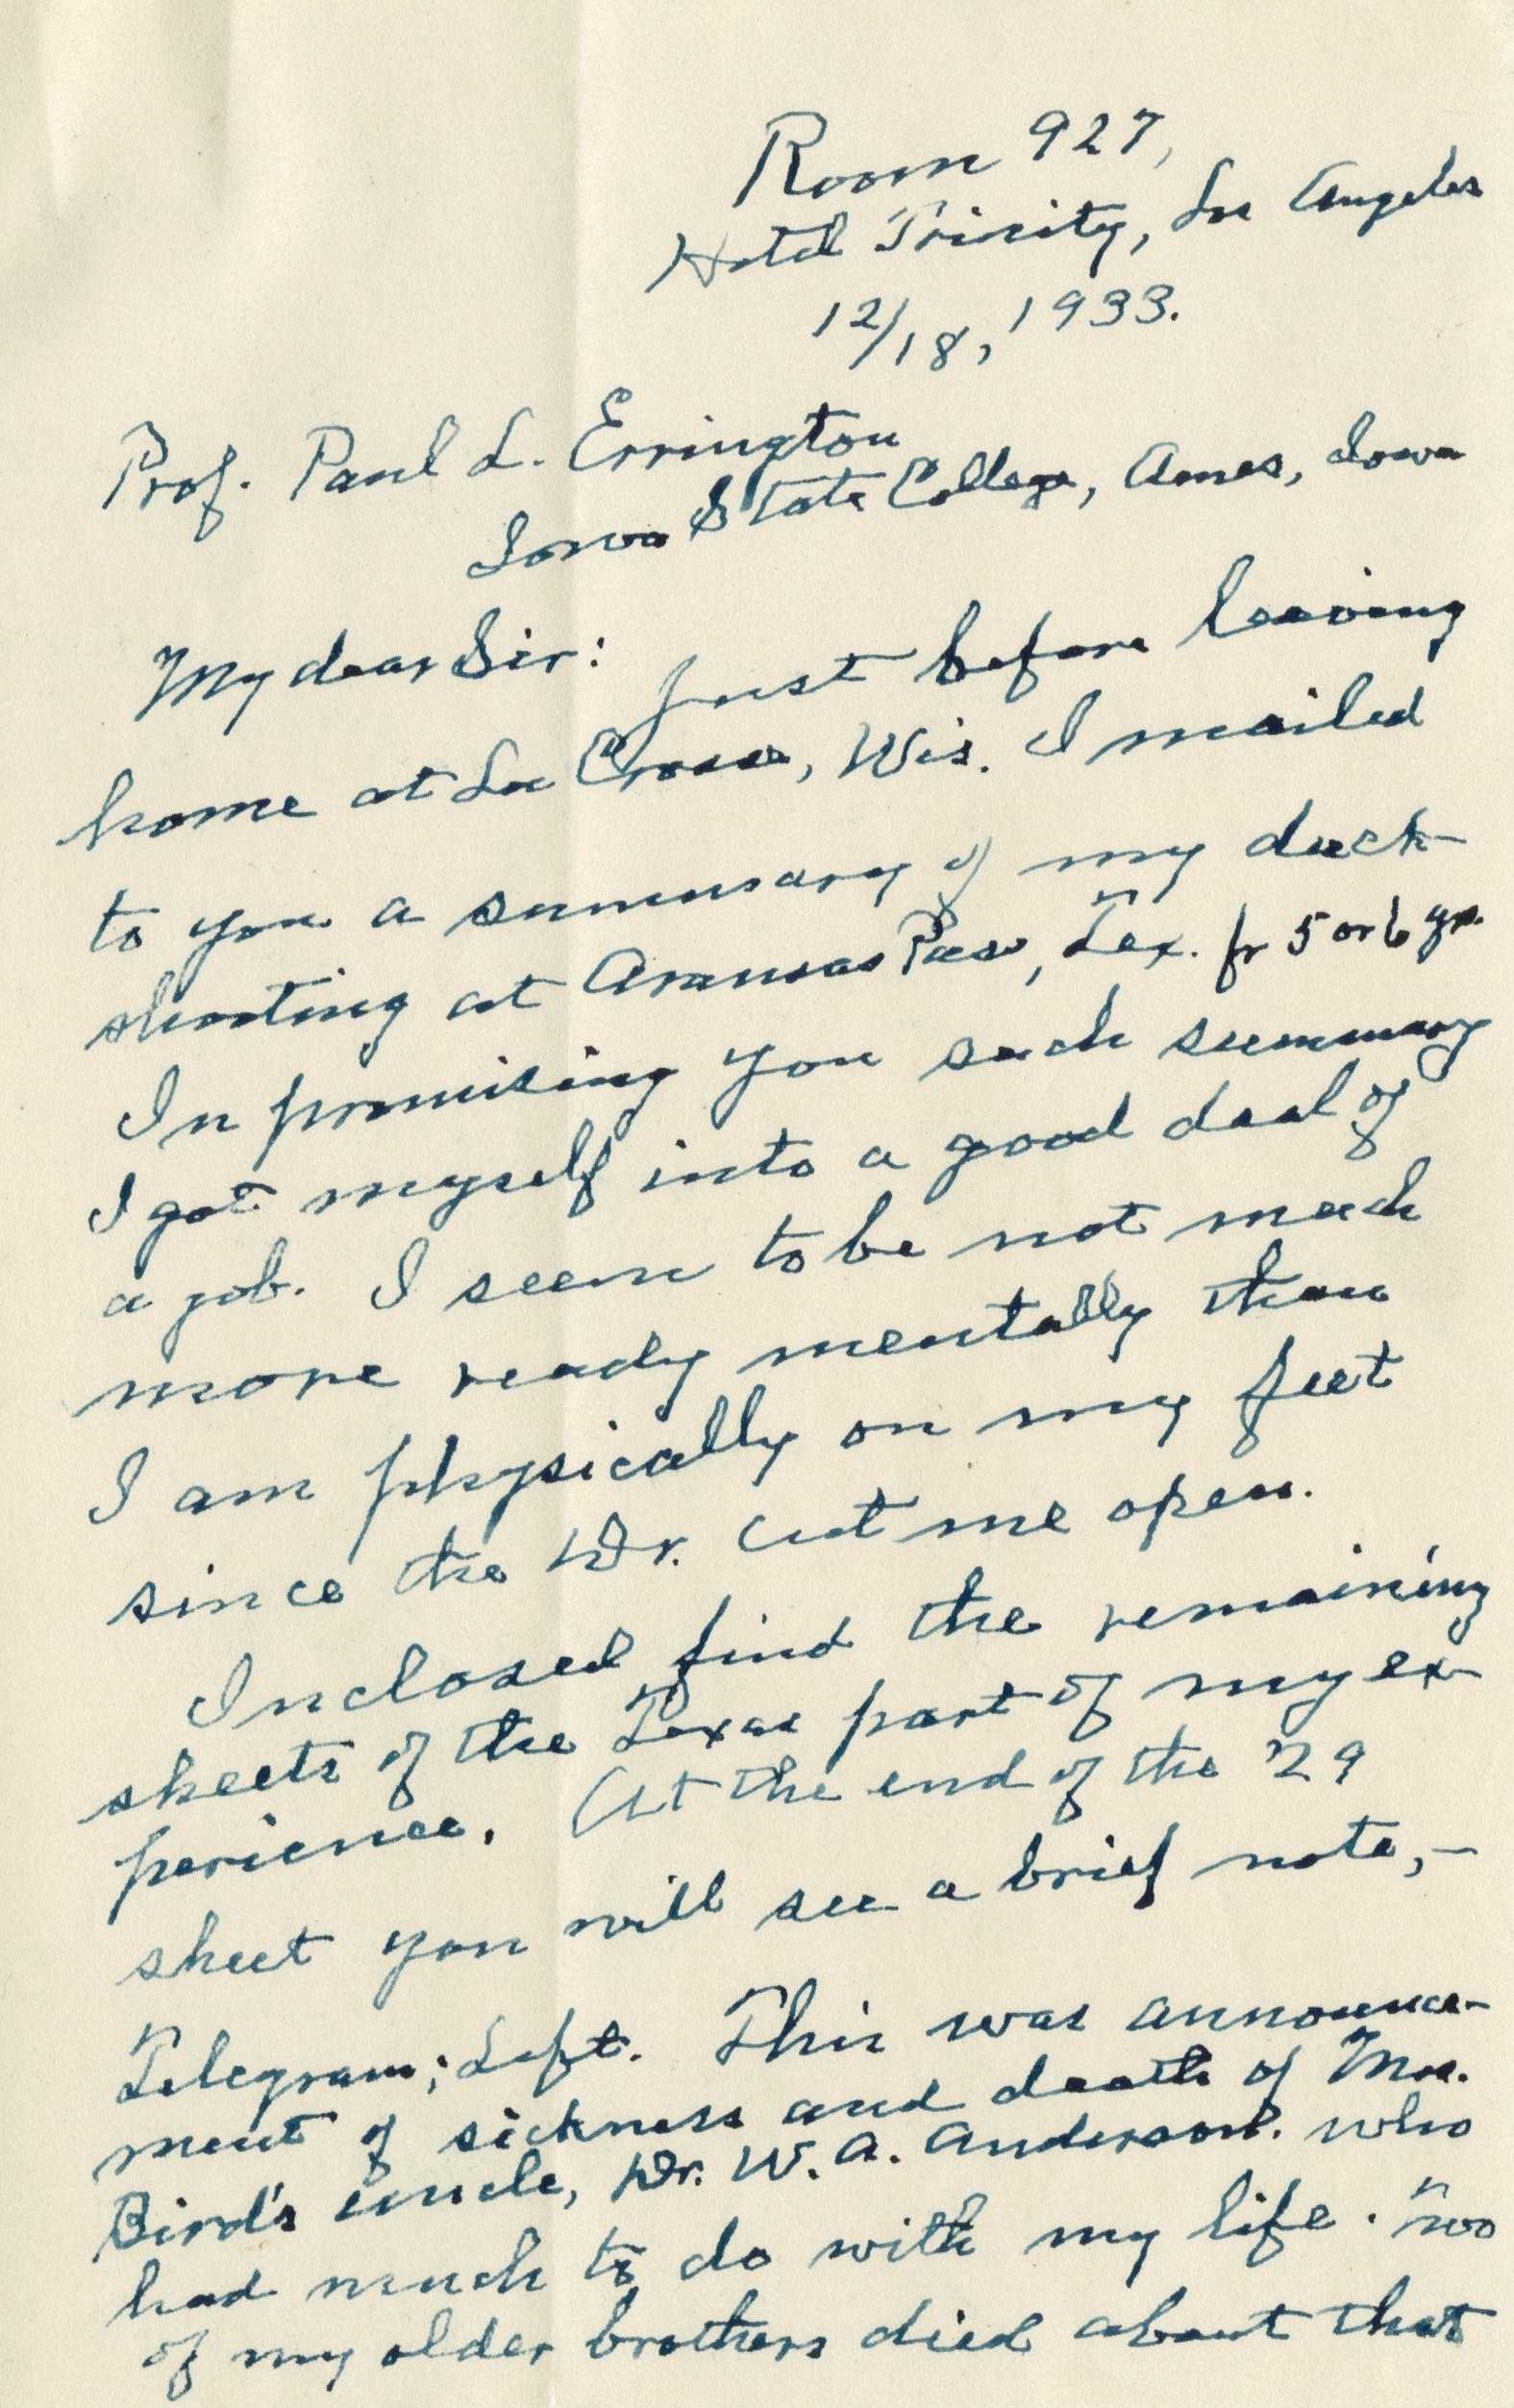 Room 927,
Hotel Trinity, Los Angeles
12/18, 1933.
Prof. Paul L. Errington
Iowa State College, Ames, Iowa
My dear Sir:
Just before leaving
home at La Crosse, Wis. I mailed
to you a summary of my duck-
shooting at Aransas Pass, Tex. fr 5 or 6 yrs.
In promising you such summary
I got myself into a good deal of
a job. I seem to be not much
more ready mentally than
I am physically on my feet
since the Dr. cut me open.
Inclosed find the remaining
sheets of the Texas part of my ex-
perience. At the end of the '29
sheet you will see a brief note,-
Telegram; Left. This was announce-
ment of sickness and death of Mrs.
Bird's uncle, Dr. W. A. Anderson. who
had much to do with my life. Two
of my older brothers died about that